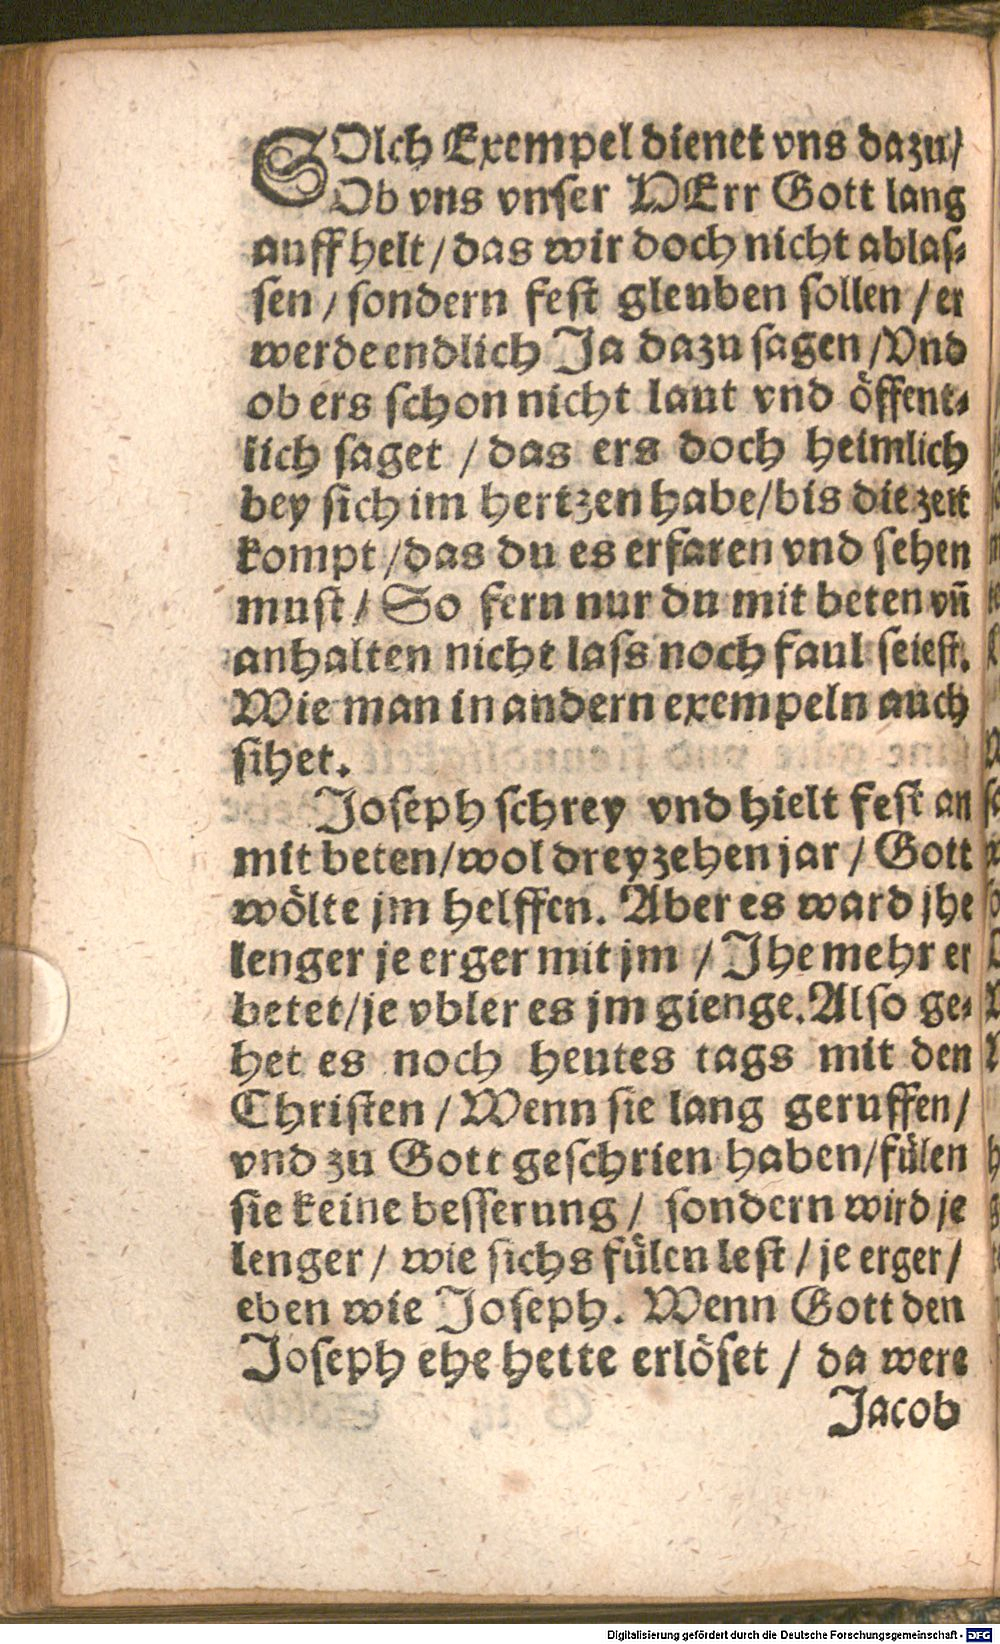 SOlch Exempel dienet vns dazu/
Ob vns vnser HErr Gott lang
auffhelt/das wir doch nicht ablas⸗
sen/sondern fest gleuben sollen/er
werde endlich Ja dazu sagen/Vnd
ob ers schon nicht laut vnd öffent⸗
lich saget/das ers doch heimlich
bey sich im hertzen habe/bis die zeit
kompt/das du es erfaren vnd sehen
must/So fern nur du mit beten vñ
anhalten nicht lass noch faul seiest.
Wie man in andern exempeln auch
sihet.
Joseph schrey vnd hielt fest an
mit beten/wol dreyzehen jar/Gott
wölte jm helffen. Aber es ward jhe
lenger je erger mit jm/Jhe mehr er
betet/je vbler es jm gienge. Also ge⸗
het es noch heutes tags mit den
Christen/Wenn sie lang geruffen/
vnd zu Gott geschrien haben/fülen
sie keine besserung/sondern wird je
lenger/wie sichs fülen lest/je erger/
eben wie Joseph. Wenn Gott den
Joseph ehe hette erlöset/da were
Jacob
Digitalisierung gefördert durch die Deutsche Forschungsgemeinschaft - DFG